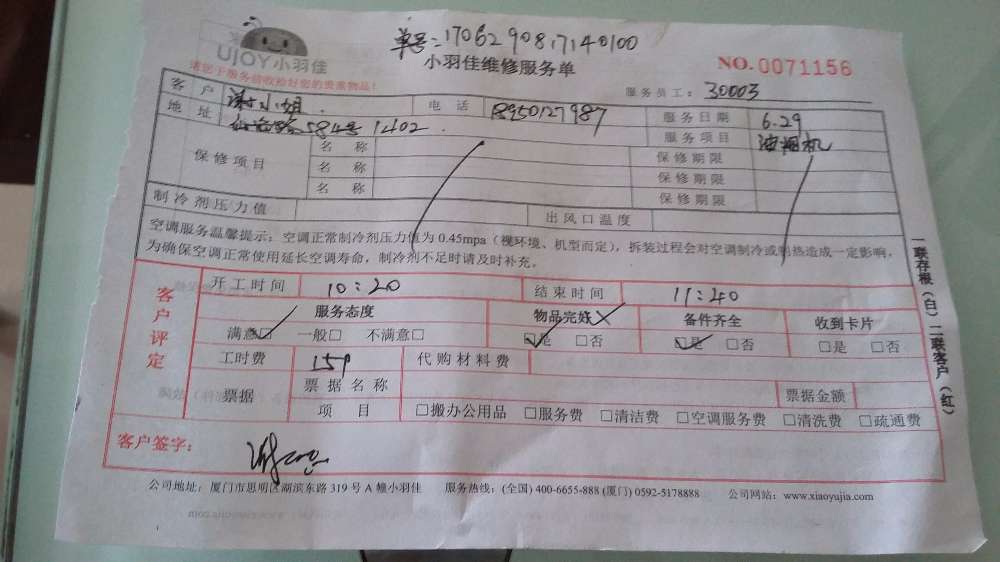 单号:1706290817140100
UJOY小羽佳
小羽佳维修服务单
NO.0071156
请您于服务前收拾好您的贵重物品!
服务员工: 30003
客户 谢小姐 电话 18950127987 服务日期 6.29
地址 584号1402 服务项目 油烟机
保修项目 名称 保修期限
名称 保修期限
名称 保修期限
制冷剂压力值 出风口温度
空调服务温馨提示:空调正常制冷剂压力值为0.45mpa(视环境、机型而定),拆装过程会对空调制冷或制热造成一定影响,
为确保空调正常使用延长空调寿命,制冷剂不足时请及时补充。
客户评定
开工时间 10:20 结束时间 11:40
服务态度 物品完好 备件齐全 收到卡片
满意□ 一般□ 不满意□ □是 □否 □是 □否 □是 □否
工时费 159 代购材料费
票据 票据名称 票据金额
项目 □搬办公用品 □服务费 □清洁费 □空调服务费 □清洗费 □疏通费
客户签字:
一联存根(白)二联客户(红)
公司地址:厦门市思明区湖滨东路319号A幢小羽佳 服务热线:(全国)400-6655-888 (厦门) 0592-5178888 公司网站:www.xiaoyujia.com